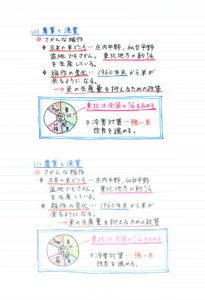 (1) 農業と漁業
さかんな稲作
日本の米どころ…庄内平野、仙台平野
盆地でもさかん。東北地方の約1/4
を生産している。
稲作の変化…1960年代から米が
余るようになる。
→米の生産量を抑えるための政策
東北は全国の1/4をしめる
冷害対策…強い米
改良を進める。
(1) 農業と漁業
さかんな稲作
日本の米どころ…庄内平野、仙台平野
盆地でもさかん。東北地方の約1/4
を生産している。
稲作の変化…1960年代から米が
余るようになる。
→米の生産量を抑えるための政策
東北は全国の1/4をしめる
冷害対策…強い米
改良を進める。